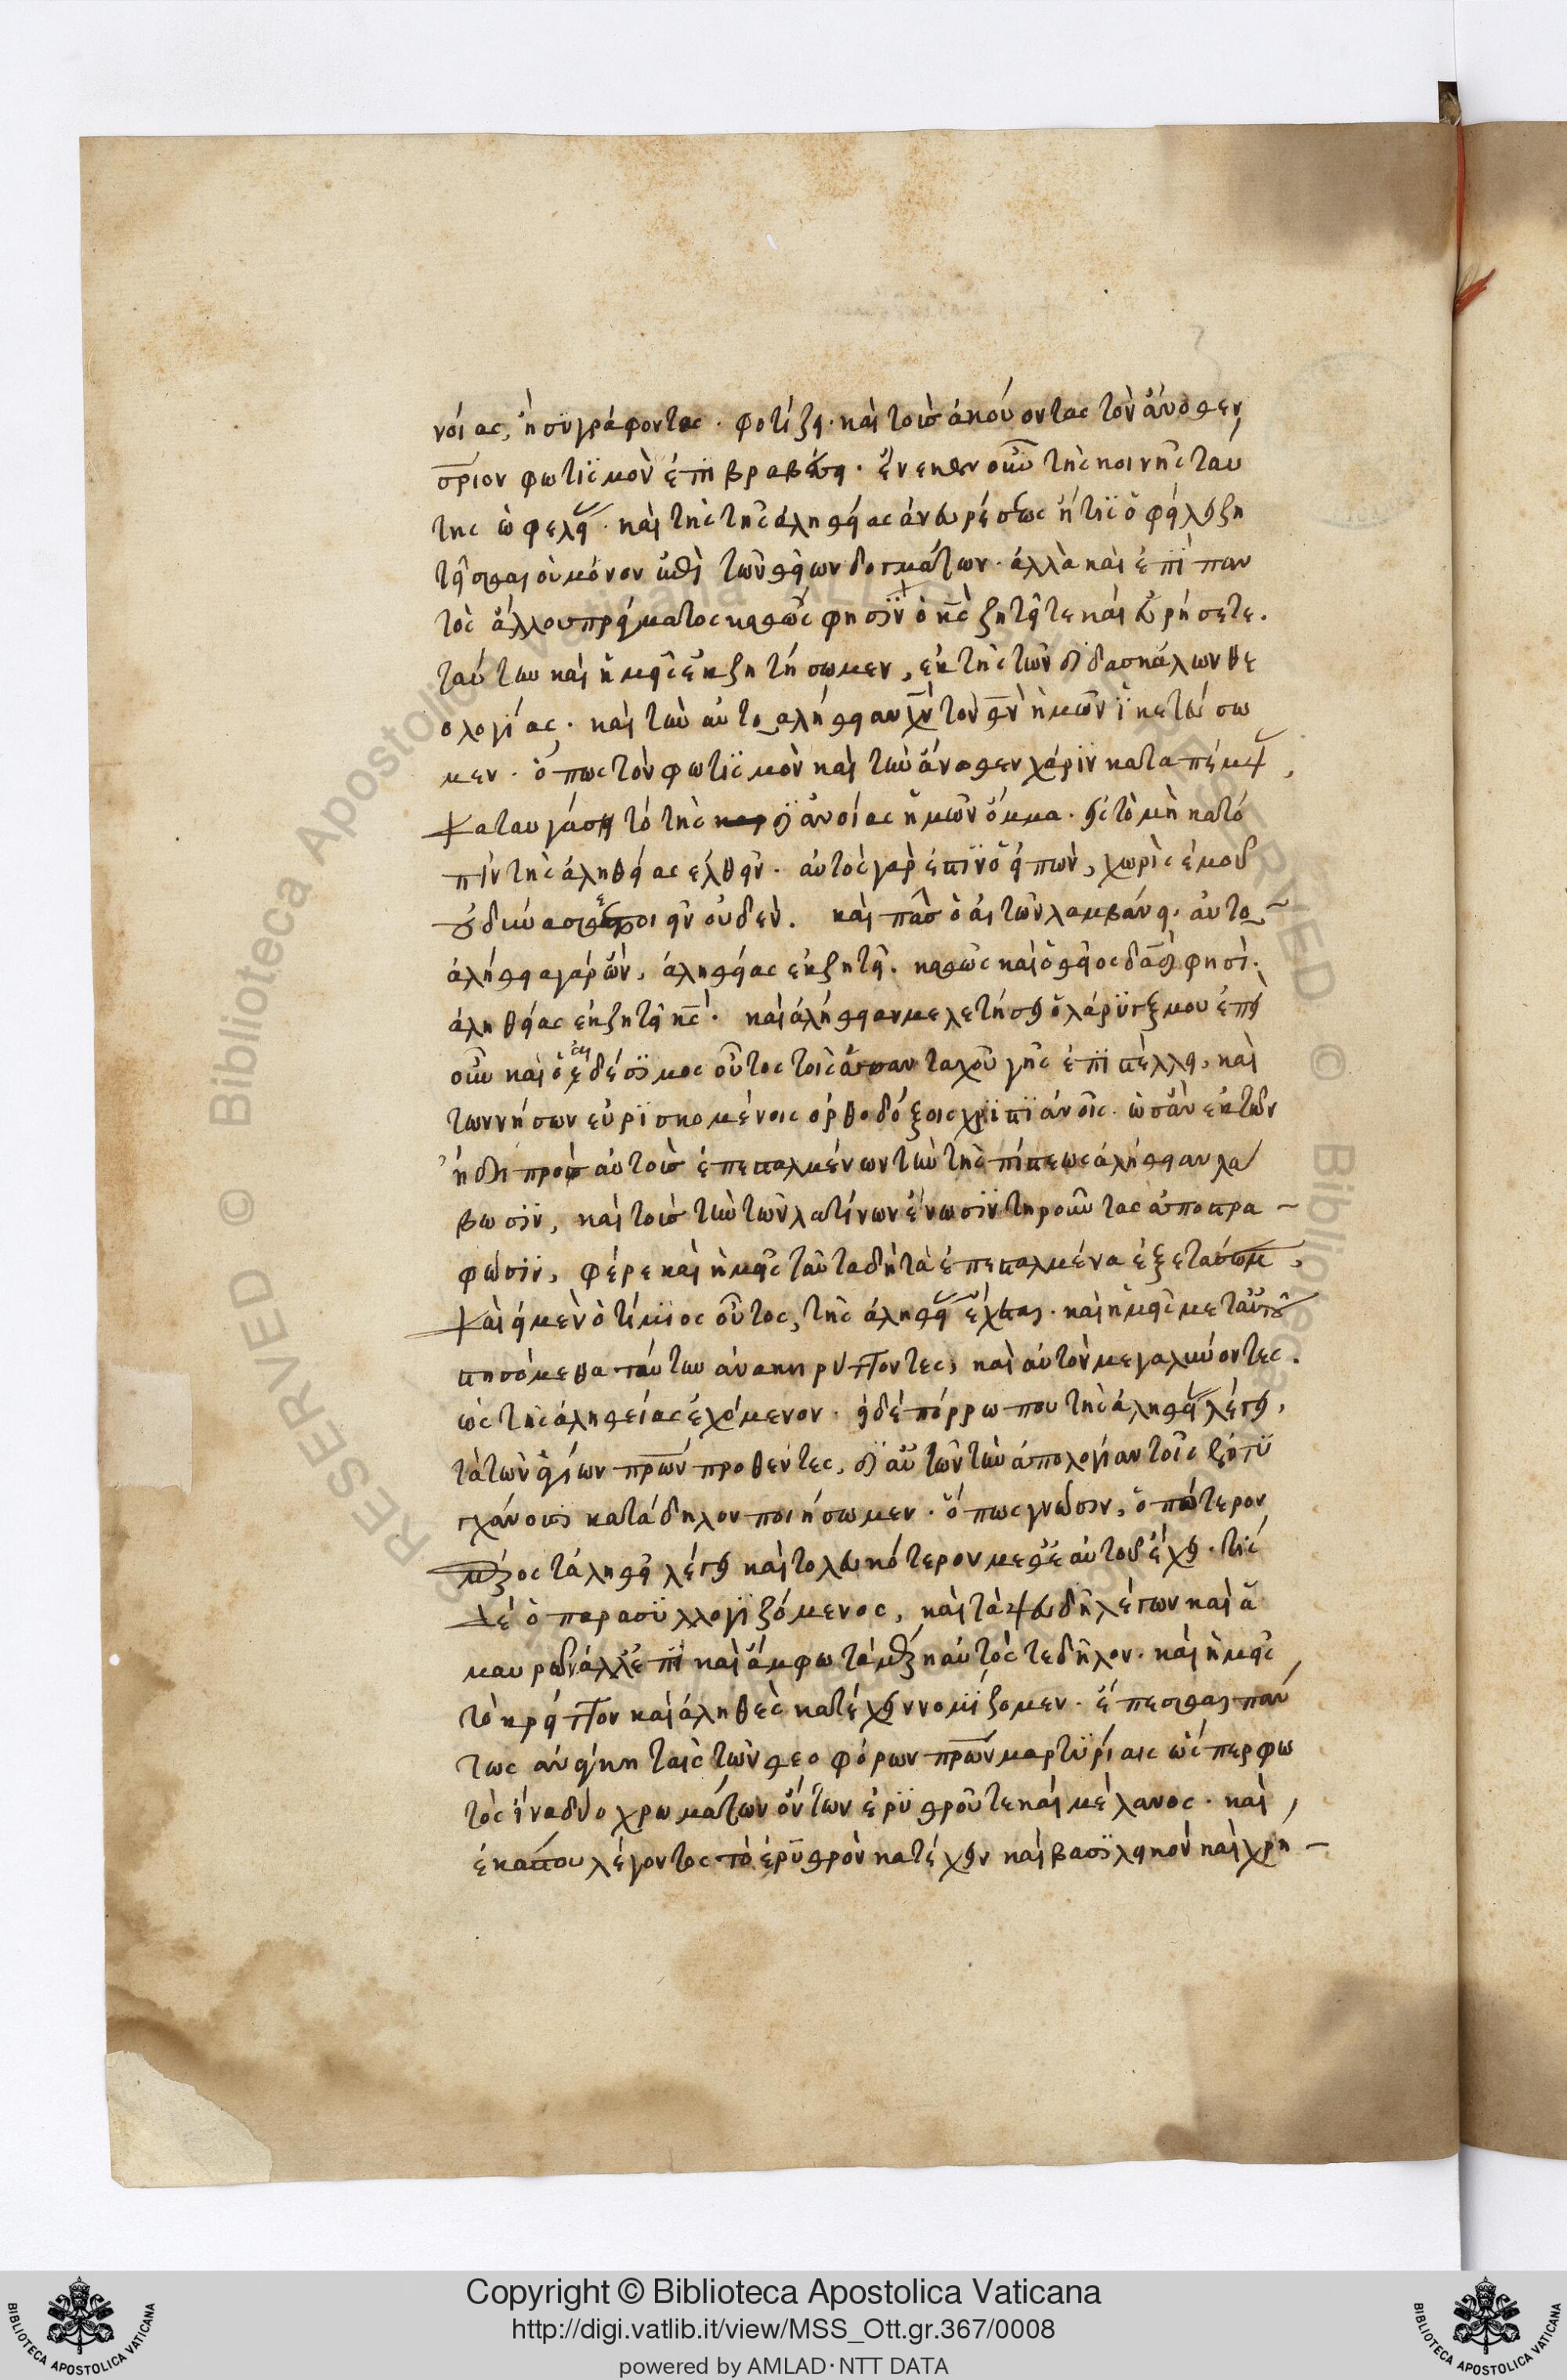 νοίας, ἢ συγράφοντας · φοτίζει · καὶ τοὺς ἀκούοντας τὸν ἄνοθεν
σριον φωτισμὸν ἐπιβραβεύει · ἕνεκεν οὖν τῆς κοινῆς ταύ
της ὠφελείας · καὶ τῆς τῆς ἀληθείας ἀνευρέσεως ἥτις ὀφείλει ζη
τεῖσθαι οὐ μόνον ἐπὶ τῶν θείων δογμάτων · ἀλλὰ καὶ ἐπὶ παν
τὸς ἄλλου πράγματος καθὼς φησὶν ὁ κς ζητεῖτε καὶ εὑρήσετε.
ταύτην καὶ ἡμεῖς ἐκζητήσωμεν, ἐκ τῆς τῶν διδασκάλων θε
ολογίας · καὶ τὴν αὐτοαλήθειαν χν τὸν θν ἡμῶν ἱκετεύσω
μεν · ὅπως τὸν φωτισμὸν καὶ τὴν ἄνοθεν χάριν καταπέμψει,
καταυγάση τὸ τῆς διανοίας ἡμῶν ὄμμα · εἰς τὸ μὴ κατό
πιν τῆς ἀληθείας ἐλθεῖν · αὐτὸς γάρ ἐστιν ὁ εἰπὼν, χωρὶς ἐμοῦ
οὐ δύνασθε ποιεῖν οὐδέν. καὶ πᾶς ὁ αἰτῶν λαμβάνει · αὐτο
ἀλήθεια γὰρ ὢν, ἀληθείας ἐκζητεῖ · καθὼς καὶ ὁ θεῖος δαδ φησί.
ἀληθείας ἐκζητεῖ κς · καὶ ἀλήθειαν μελετήσει ὁ λάρυγξ μου ἐπεὶ
οὖν καὶ ὁ αἰδέσιμος οὗτος τοῖς ἁπανταχοῦ γῆς ἐπιστέλλει, καὶ
τῶν νήσων εὑρισκομένοις ὀρθοδόξοις χριστιάνοις · ὡς ἂν ἐκ τῶν
ἤδη πρὸς αὐτοὺς ἐπεσταλμένων τὴν τῆς πίστεως ἀλήθειαν λά
βωσιν, καὶ τοὺς τὴν τῶν λατίνων ἕνωσιν τηροῦντας ἀποστρα
φῶσιν, φέρε καὶ ἡμεῖς ταῦτα δὴ τὰ ἐπεσταλμένα ἐξετάσωμεν,
καὶ εἰ μὲν ὁ τίμιος οὗτος, τῆς ἀληθείας ἔχεται · καὶ ἡμεῖς μετ' αὐτοῦ
στησόμεθα ταύτην ἀνακηρύττοντες, καὶ αὐτὸν μεγαλύνοντες.
ὡς τῆς ἀληθείας ἐχόμενον · εἰ δὲ πόρρω που τῆς ἀληθείας λέγει,
τὰ τῶν ἁγίων πρων προθέντες, δι' αὐτῶν τὴν ἀπολογίαν τοῖς ἐντυ
γχάνουσι κατάδηλον ποιήσωμεν · ὅπως γνῶσιν, ὁπότερον
μέρος τἀληθῆ λέγει καὶ τὸ λευκότερον μεθ' ἑαυτοῦ ἔχει · τίς
δὲ ὁ παρασυλλογιζόμενος, καὶ τὰ ψευδῆ λέγων καὶ ἀ
μαυρῶν ἀλλ' ἐπεὶ καὶ ἄμφω τὰ μέρη καυτός τε δῆλον · καὶ ἡμεῖς
τὸ κρεῖττον καὶ ἀληθὲς κατέχειν νομίζομεν · ἕπεσθαι πάν
τως ἀνάγκη ταῖς τῶν θεοφόρων πρων μαρτυρίαις ὥσπερ φω
τὸς ἵνα δύο χρωμάτων ὄντων ἐρυθροῦ τε καὶ μέλανος · καὶ
ἑκάστου λέγοντος τὸ ἐρυθρὸν κατέχειν καὶ βασιλικὸν καὶ χρη
Copyright © Biblioteca Apostolica Vaticana
http://digi.vatlib.it/view/MSS_Ott.gr.367/0008
powered by AMLAD·NTT DATA